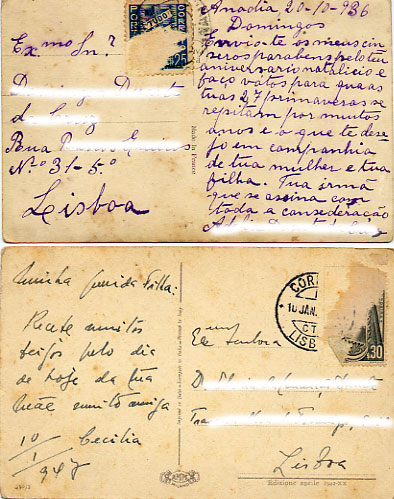 Ex.mo Snr.
Rua
N.º 31-5.º
Lisboa
Made in France
CORREIO
$25
Anadia 20-10-936
Domingos
Envio-te os meus sin
seros parabens pelo teu
aniversario natalicio e
faço vótos para que as
tuas 27 primaveras se
repitam por muitos
anos e o que te dese
jo em companhia
de tua mulher e tua
filha. Tua irmã
que se assina com
toda a consederação
Minha querida Filha:
Recebe muitos
beijos pelo dia
de hoje da tua
Mãe muito amiga
Cecilia
10/1/947
CORRE
10 JAN.
CT
LISB
$30
Exma Senhora
D.
Lisboa
Edizione aprile 1942-XX